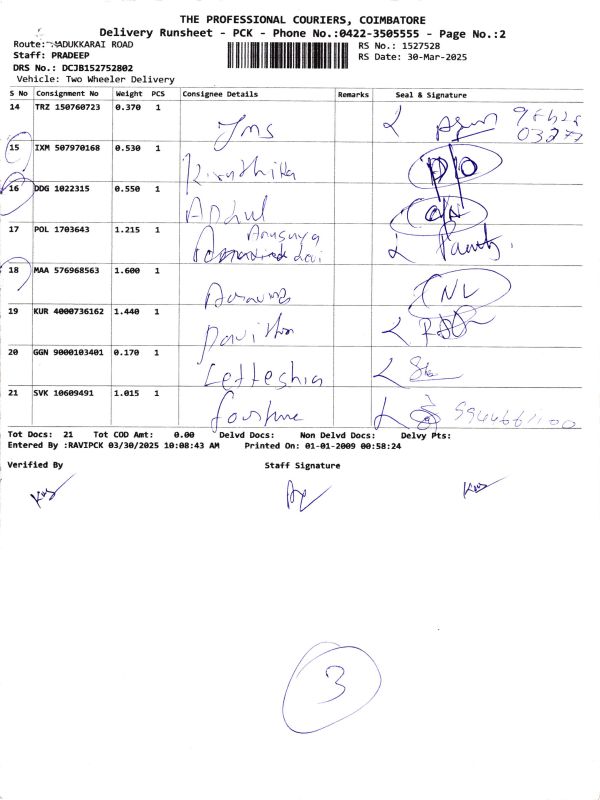 THE PROFESSIONAL COURIERS, COIMBATORE
Delivery Runsheet - PCK - Phone No.:0422-3505555 - Page No.:2
Route: MADUKKARAI ROAD
RS No.: 1527528
Staff: PRADEEP
RS Date: 30-Mar-2025
DRS No.: DCJB152752802
Vehicle: Two Wheeler Delivery
S No Consignment No Weight PCS Consignee Details Remarks Seal & Signature
14 TRZ 150760723 0.370 1
Jms
15 IXM 507970168 0.530 1
Kiruthika
16 DDG 1022315 0.550 1
Abdul
17 POL 1703643 1.215 1
Anusuya
18 MAA 576968563 1.600 1
CNL
19 KUR 4000736162 1.440 1
Pavithra
20 GGN 9000103401 0.170 1
21 SVK 10609491 1.015 1
Tot Docs: 21 Tot COD Amt: 0.00 Delvd Docs: Non Delvd Docs: Delvy Pts:
Entered By :RAVIPCK 03/30/2025 10:08:43 AM Printed On: 01-01-2009 00:58:24
Verified By Staff Signature
3